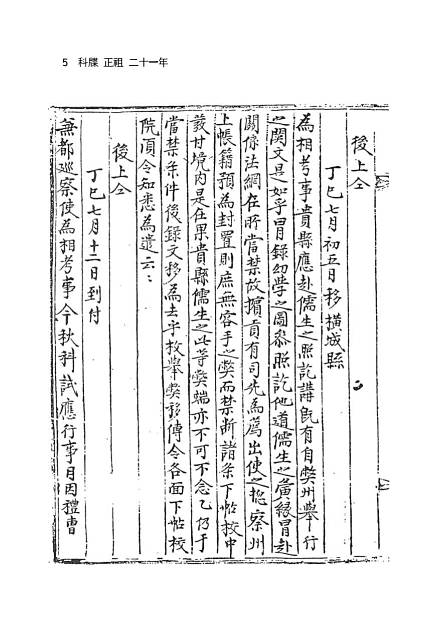 5 科牒 正祖 二十一年
後上仝
丁巳七月初五日移橫城縣
為相考事貴縣應赴儒生之照訖講旣有自弊州擧行
之関文是如乎冒錄幼學之圖參照訖他道儒生之夤緣冒赴
関係法網在所當禁故擯貢有司先為薦出使之揔察州
上帳籍預為封置則庶無容手之弊而禁斷諸条下帖校中
境內是在果貴縣儒生之此等弊端亦不可不念乙仍于
當禁条件後錄文移為去乎枚擧移傳令各面下帖校
院頂令知悉為遣云〻
後上仝
丁巳七月十二日到付
兼都巡察使為相考事今秋科試應行事目因禮曺